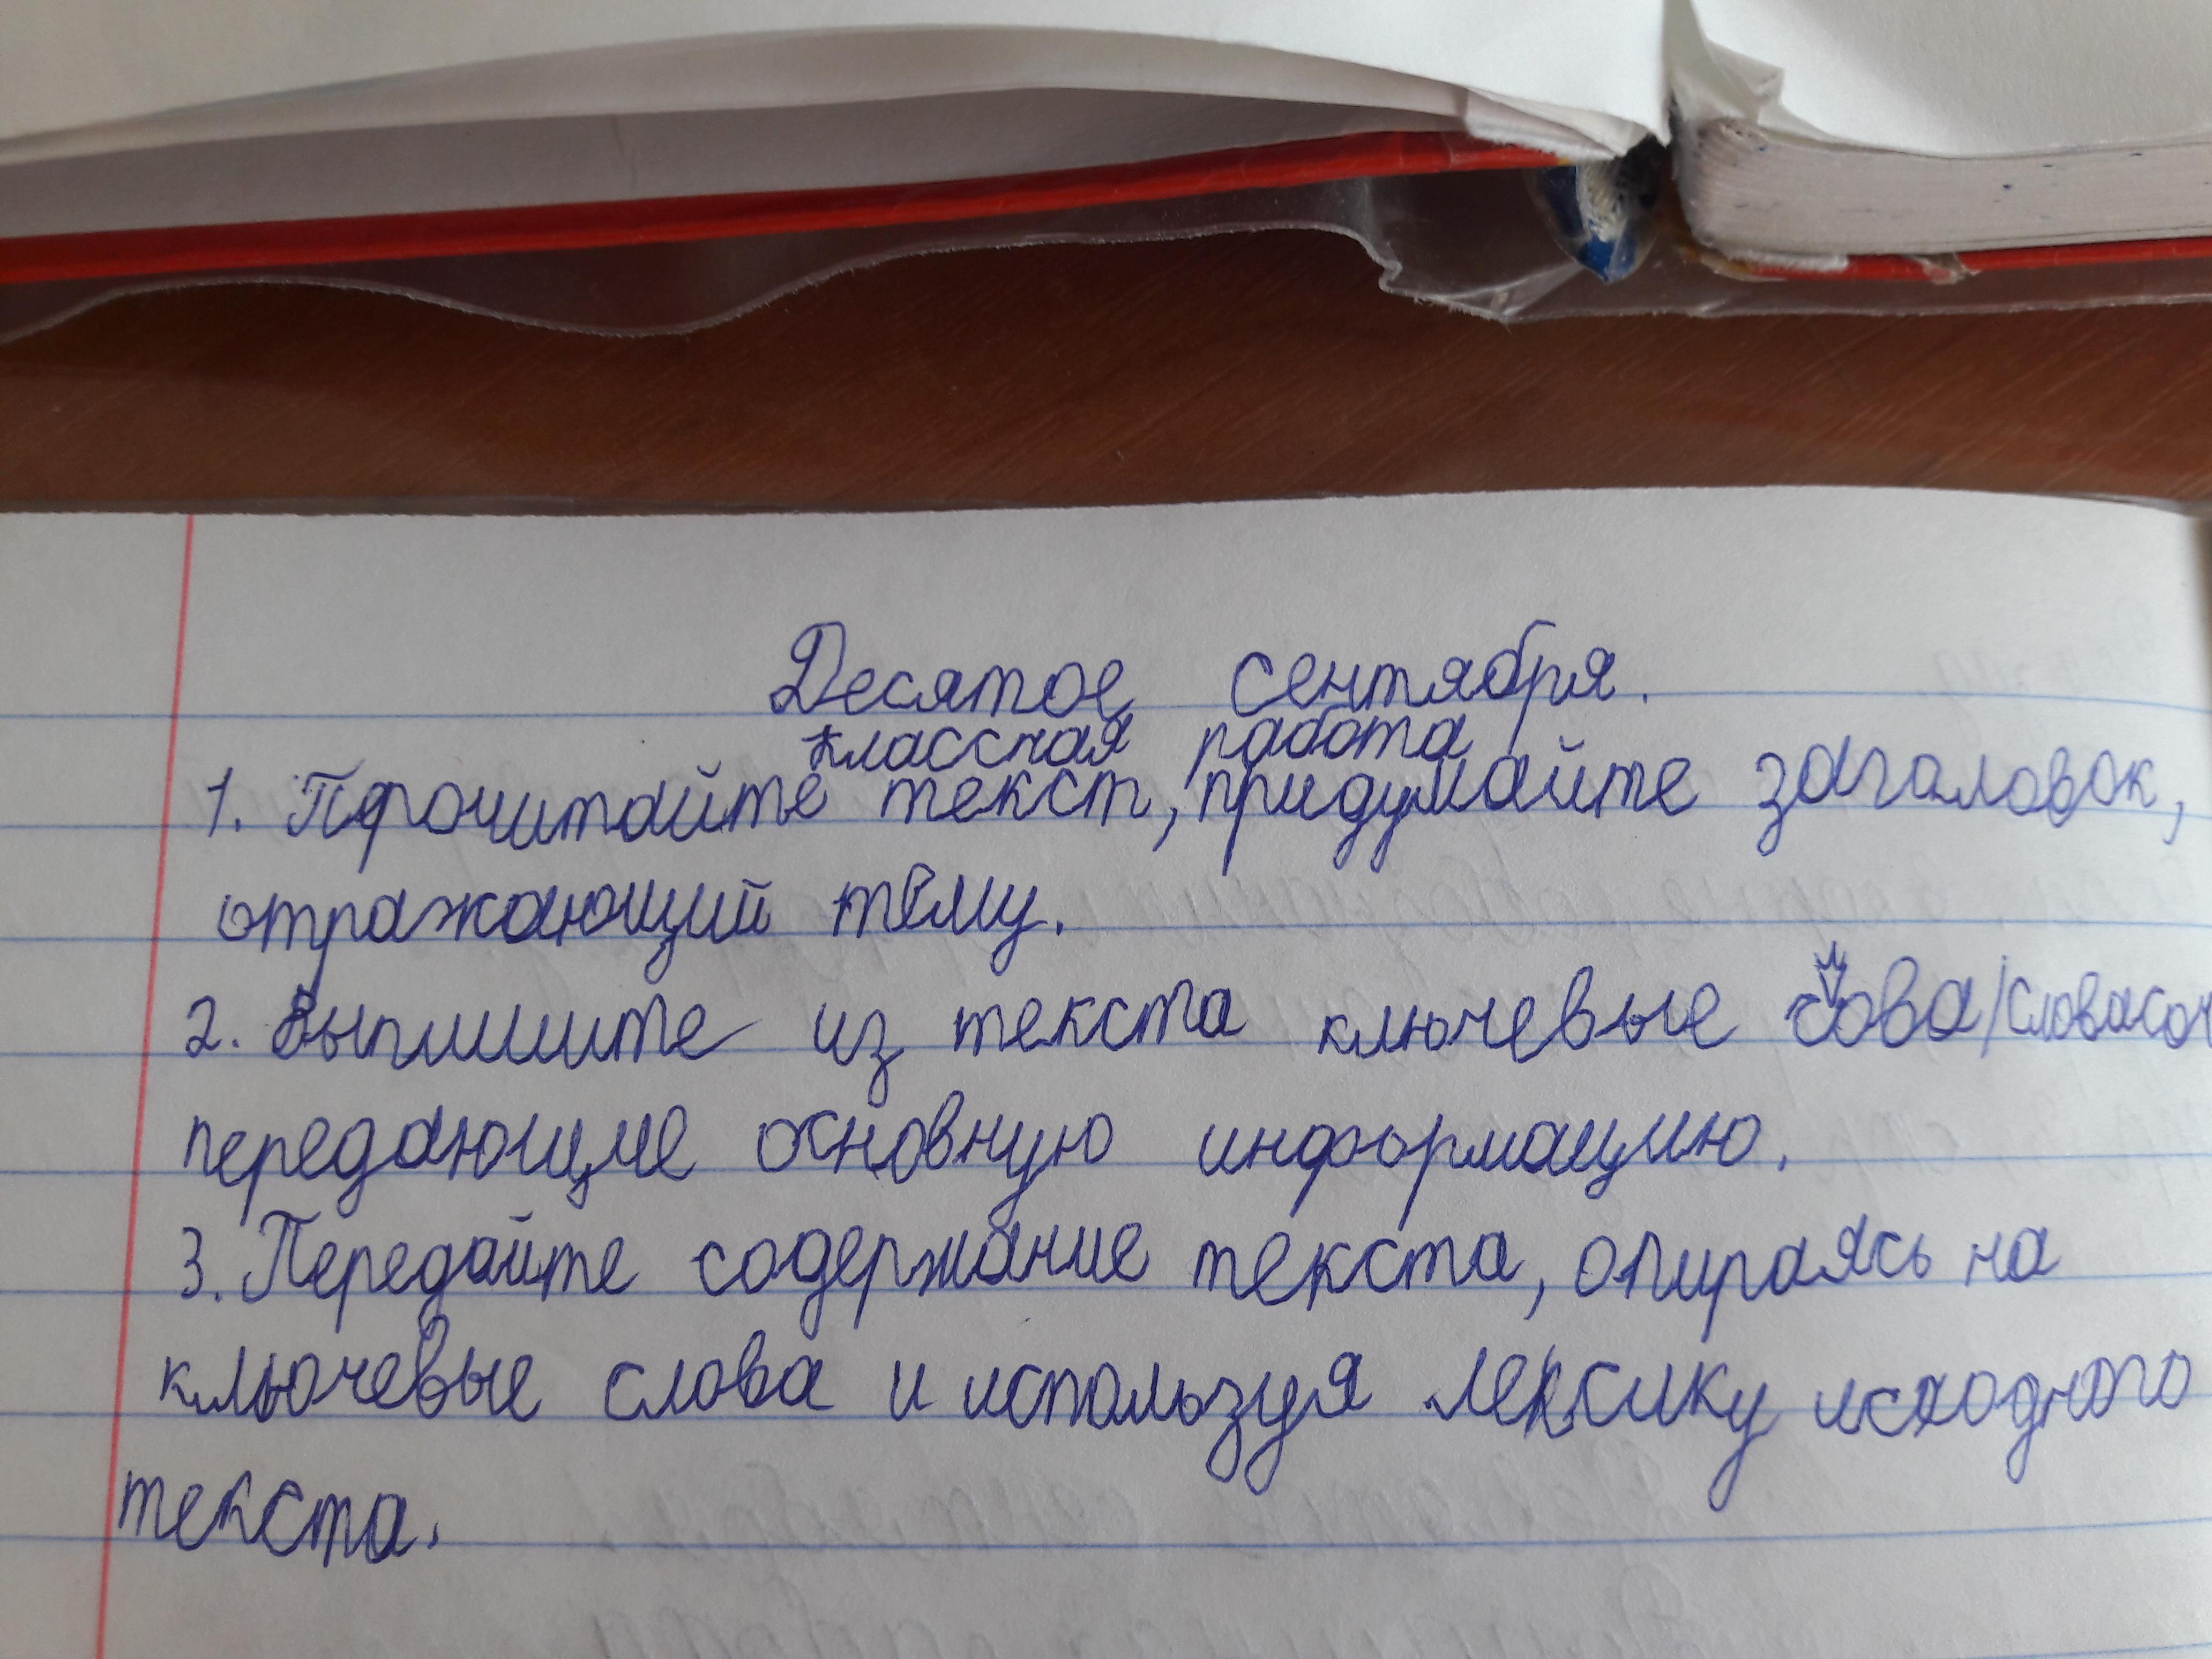 Десятое сентября.
классная работа
1. Прочитайте текст, придумайте заголовок,
отражающий тему.
2. Выпишите из текста ключевые слова/словасоч
передающие основную информацию.
3. Передайте содержание текста, опираясь на
ключевые слова и используя лексику исходного
текста.